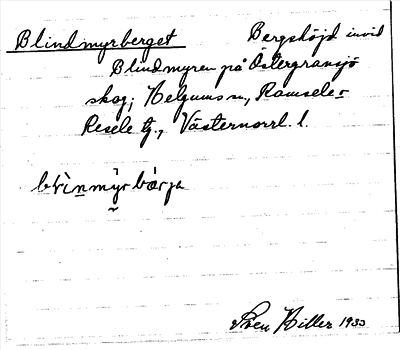 Blindmyrberget Bergshöjd invid
Blindmyren på Östergransjö
skog; Helgums sn, Ramsele-
Resele tg., Västernorrl. l.
Sven Hiller 1933